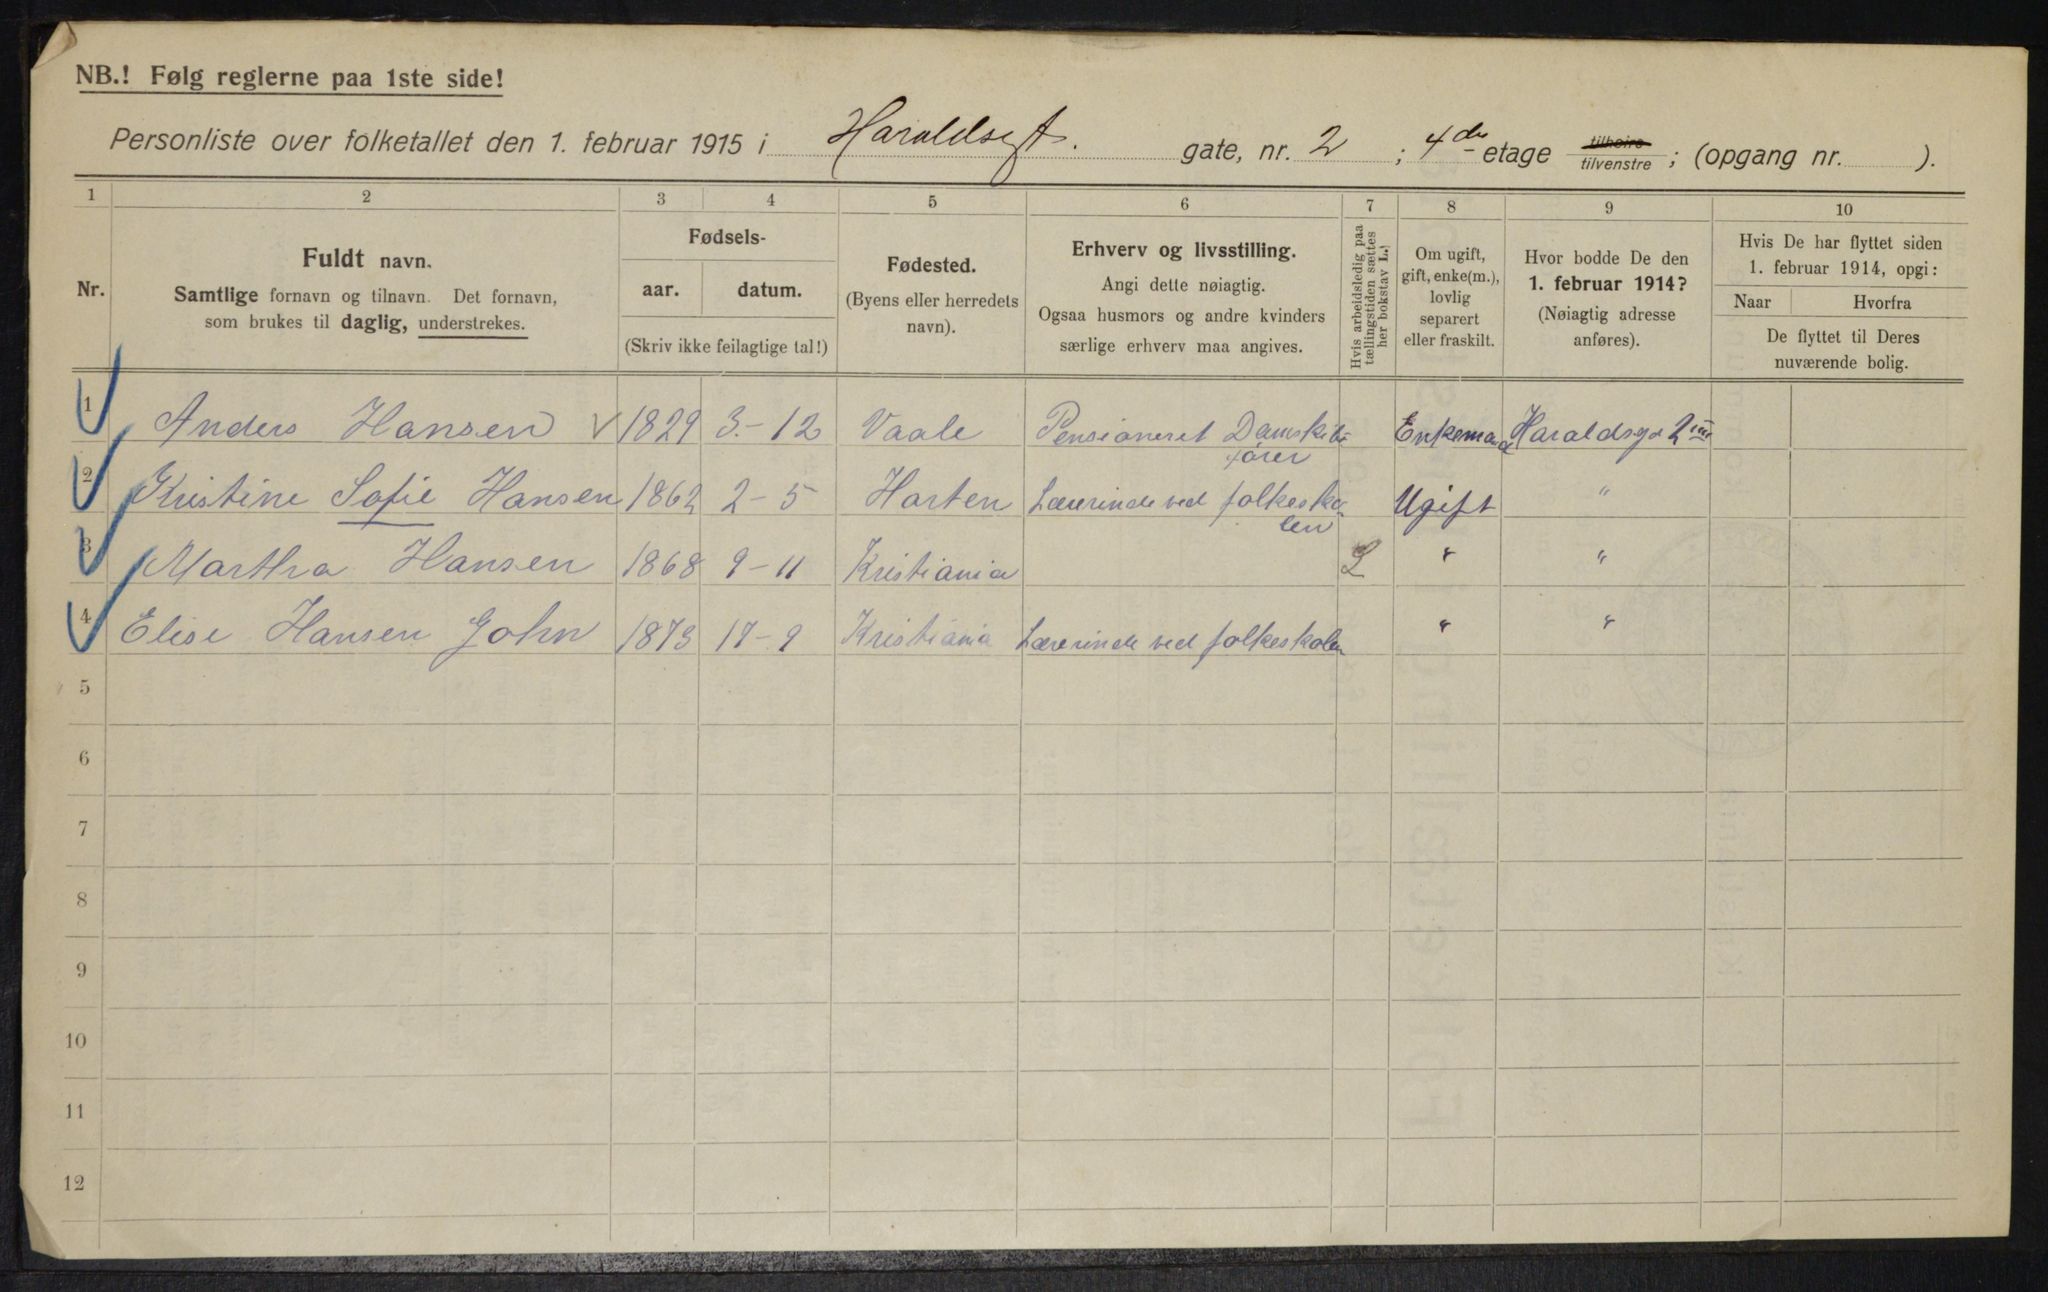 NB.! Følg reglerne paa 1ste side!
Personliste over folketallet den 1. februar 1915 i Haraldsgt. gate, nr. 2 ; 4de etage tilhoire tilvenstre ; (opgang nr. ).
1 2 3 4 5 6 7 8 9 10
Nr.
Fuldt navn.
Samtlige fornavn og tilnavn. Det fornavn,
som brukes til daglig, understrekes.
Fødsels-
aar. datum.
(Skriv ikke feilagtige tal!)
Fødested.
(Byens eller herredets
navn).
Erhverv og livsstilling.
Angi dette nøiagtig.
Ogsaa husmors og andre kvinders
særlige erhverv maa angives.
Hvis arbeidsledig paa
tællingstiden sættes
her bokstav L.
Om ugift,
gift, enke(m.),
lovlig
separert
eller fraskilt.
Hvor bodde De den
1. februar 1914?
(Nøiagtig adresse
anføres).
Hvis De har flyttet siden
1. februar 1914, opgi:
Naar Hvorfra
De flyttet til Deres
nuværende bolig.
1 Anders Hansen 1829 3.-12 Vaale Pensioneret Damskibs Enkemand Haraldsgt 2 III
fører
2 Kristine Sofie Hansen 1862 2-5 Horten Lærerinde ved folkesko- Ugift "
len
3 Martha Hansen 1868 9-11 Kristiania L " "
4 Elise Hansen John 1873 17-9 Kristiania Lærerinde ved folkeskolen " "
5
6
7
8
9
10
11
12